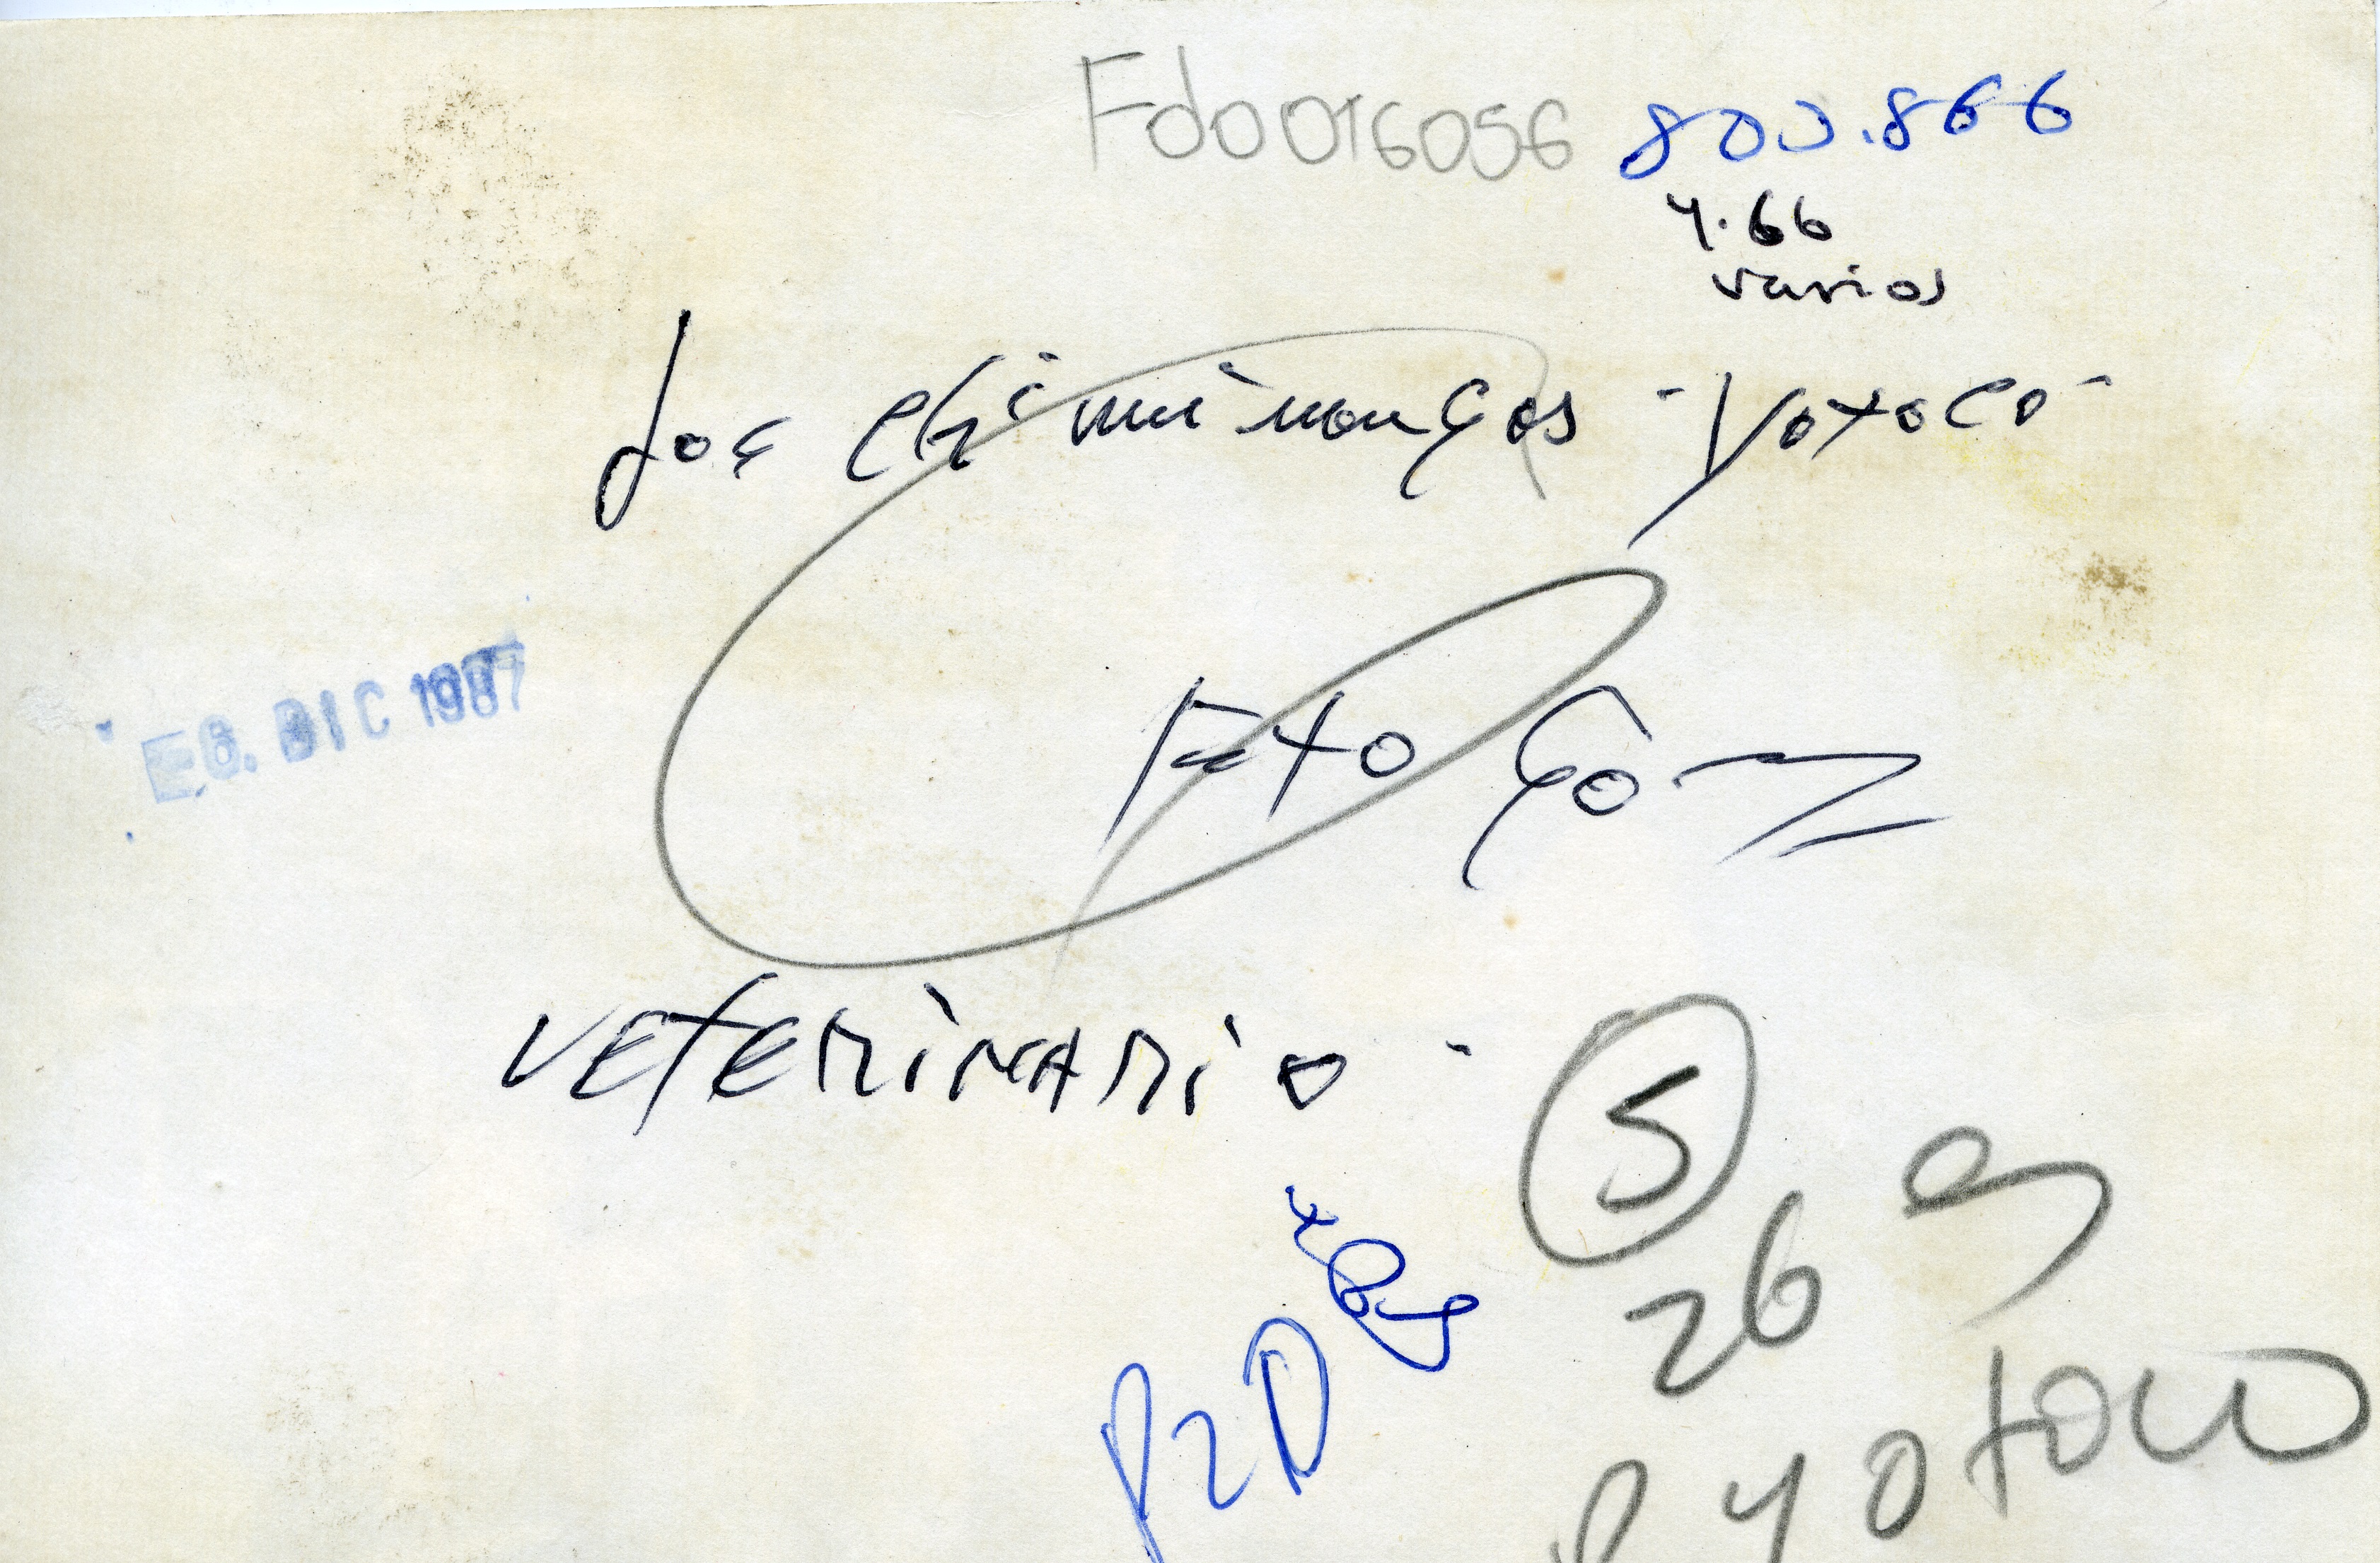 Fdo 016056 800.866
4.66
varios
Los chiminangos - Yotoco -
Foto Gon
E 6. DIC 1987
VETERINARIO -
5
26
P2D
Yotoco